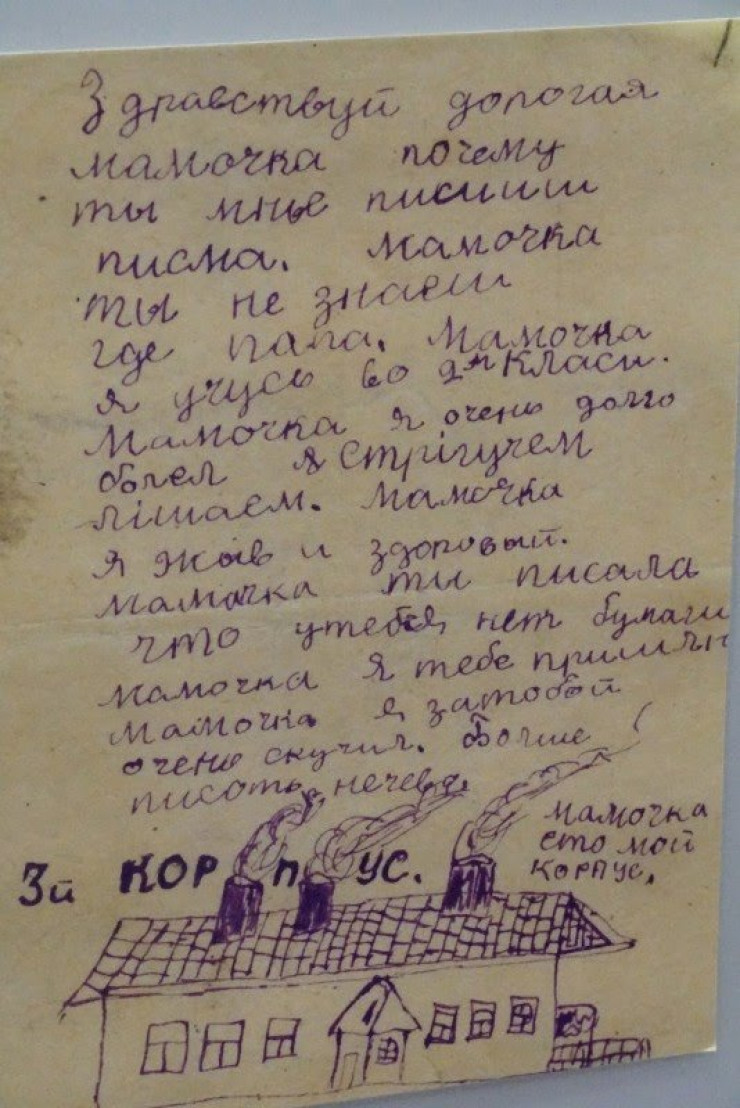 Здравствуй дорогая
мамочка почему
ты мнье писиши
писма. Мамочка
ты не знаеш
где папа. Мамочка
я учусь во 2м Класи.
Мамочка я очень долго
болел я стрігучем
лішаем. Мамочка
я жив и здоровый.
мамочка ты писала
что утебя нет бумаги
мамочка я тебе пришлю
мамочка я затобой
очень скучил. Болше
писать нечево.
3й КОРПУС.
мамочка
ето мой
корпус.